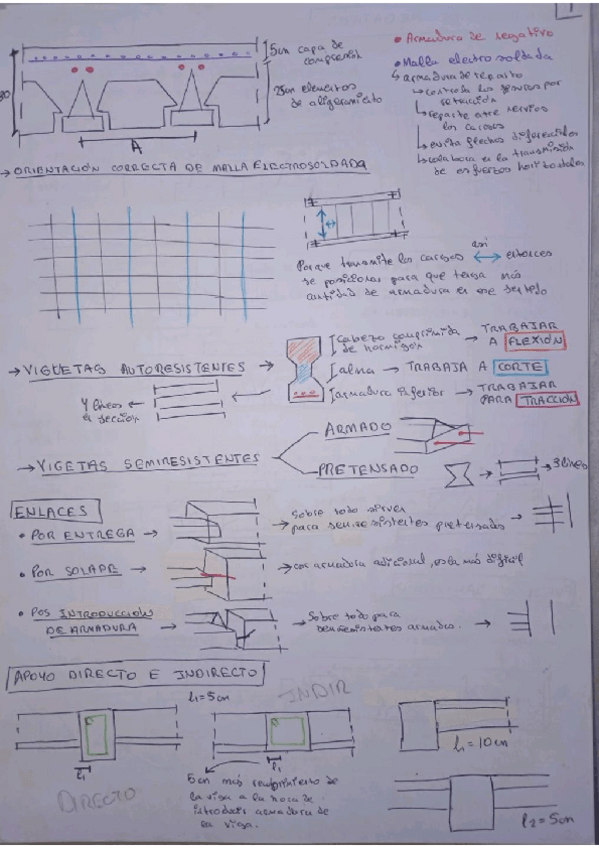 1
5cm capa de
compresión
25cm elementos
de aligeramiento
30
A
• Armadura de negativo
• Malla electrosoldada
↳ armadura de reparto
↳ controla las fisuras por
retracción
↳ reparte entre nervios
las cargas
↳ evita efectos diferenciales
↳ colabora en la transmisión
de esfuerzos horizontales
→ ORIENTACIÓN CORRECTA DE MALLA ELECTROSOLDADA
Porque transmite las cargas así ↔ entonces
se posicionan para que tenga más
cantidad de armadura en ese sentido
→ VIGUETAS AUTORESISTENTES →
Cabeza comprimida
de hormigón
→ TRABAJAR
A FLEXIÓN
alma → TRABAJA A CORTE
armadura inferior → TRABAJAR
PARA TRACCIÓN
4 líneas
en sección
→ VIGETAS SEMIRESISTENTES
ARMADO
PRETENSADO
→ 3 líneas
ENLACES
• POR ENTREGA →
→ Sobre todo sirven
para semirresistentes pretensados →
• POR SOLAPE →
→ con armadura adicional, esta más difícil
• POS INTRODUCCIÓN
DE ARMADURA →
→ Sobre todo para
semirresistentes armados. →
APOYO DIRECTO E INDIRECTO
l₁=5cm
INDIR
l₁
l₁
l₁=10cm
DIRECTO
5cm más recubrimiento de
la viga a la hora de
introducir armadura de
la viga.
l₂=5cm